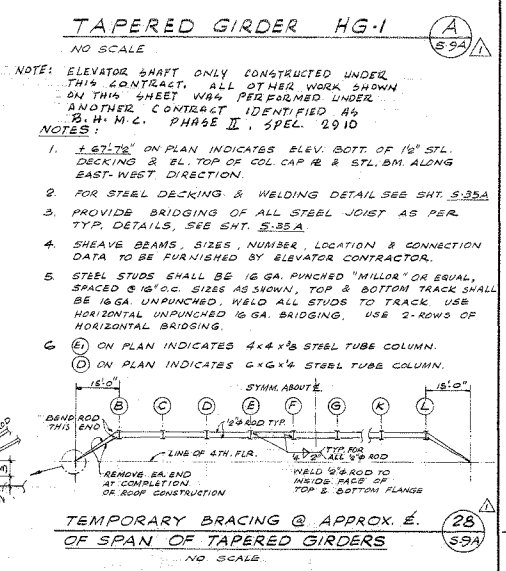 TAPERED GIRDER HG-1
A
S-9A
1
NO SCALE
NOTE: ELEVATOR SHAFT ONLY CONSTRUCTED UNDER
THIS CONTRACT. ALL OTHER WORK SHOWN
ON THIS SHEET WAS PERFORMED UNDER
ANOTHER CONTRACT IDENTIFIED AS
B.H.M.C. PHASE II, SPEC. 2910
NOTES:
1. + 67'-7½" ON PLAN INDICATES ELEV. BOTT. OF 1½" STL.
DECKING & EL. TOP OF COL. CAP ℞ & STL. BM. ALONG
EAST-WEST DIRECTION.
2. FOR STEEL DECKING & WELDING DETAIL SEE SHT. S-35A
3. PROVIDE BRIDGING OF ALL STEEL JOIST AS PER
TYP. DETAILS, SEE SHT. S-35A.
4. SHEAVE BEAMS, SIZES, NUMBER, LOCATION & CONNECTION
DATA TO BE FURNISHED BY ELEVATOR CONTRACTOR.
5. STEEL STUDS SHALL BE 16 GA. PUNCHED "MILLOR" OR EQUAL,
SPACED @ 16" O.C. SIZES AS SHOWN, TOP & BOTTOM TRACK SHALL
BE 16 GA. UNPUNCHED, WELD ALL STUDS TO TRACK. USE
HORIZONTAL UNPUNCHED 16 GA. BRIDGING, USE 2-ROWS OF
HORIZONTAL BRIDGING.
6 E1 ON PLAN INDICATES 4x4x3/8 STEEL TUBE COLUMN.
D ON PLAN INDICATES 6x6x1/4 STEEL TUBE COLUMN.
15'-0"
SYMM. ABOUT ℄
15'-0"
B C D E F G K L
BEND ROD
THIS END
½"φ ROD TYP.
LINE OF 4TH. FLR.
4 2"
TYP. FOR
ALL ½"φ ROD
REMOVE EA. END
AT COMPLETION
OF ROOF CONSTRUCTION
WELD ½"φ ROD TO
INSIDE FACE OF
TOP & BOTTOM FLANGE
TEMPORARY BRACING @ APPROX. ℄.
OF SPAN OF TAPERED GIRDERS
28
S-9A
1
NO SCALE